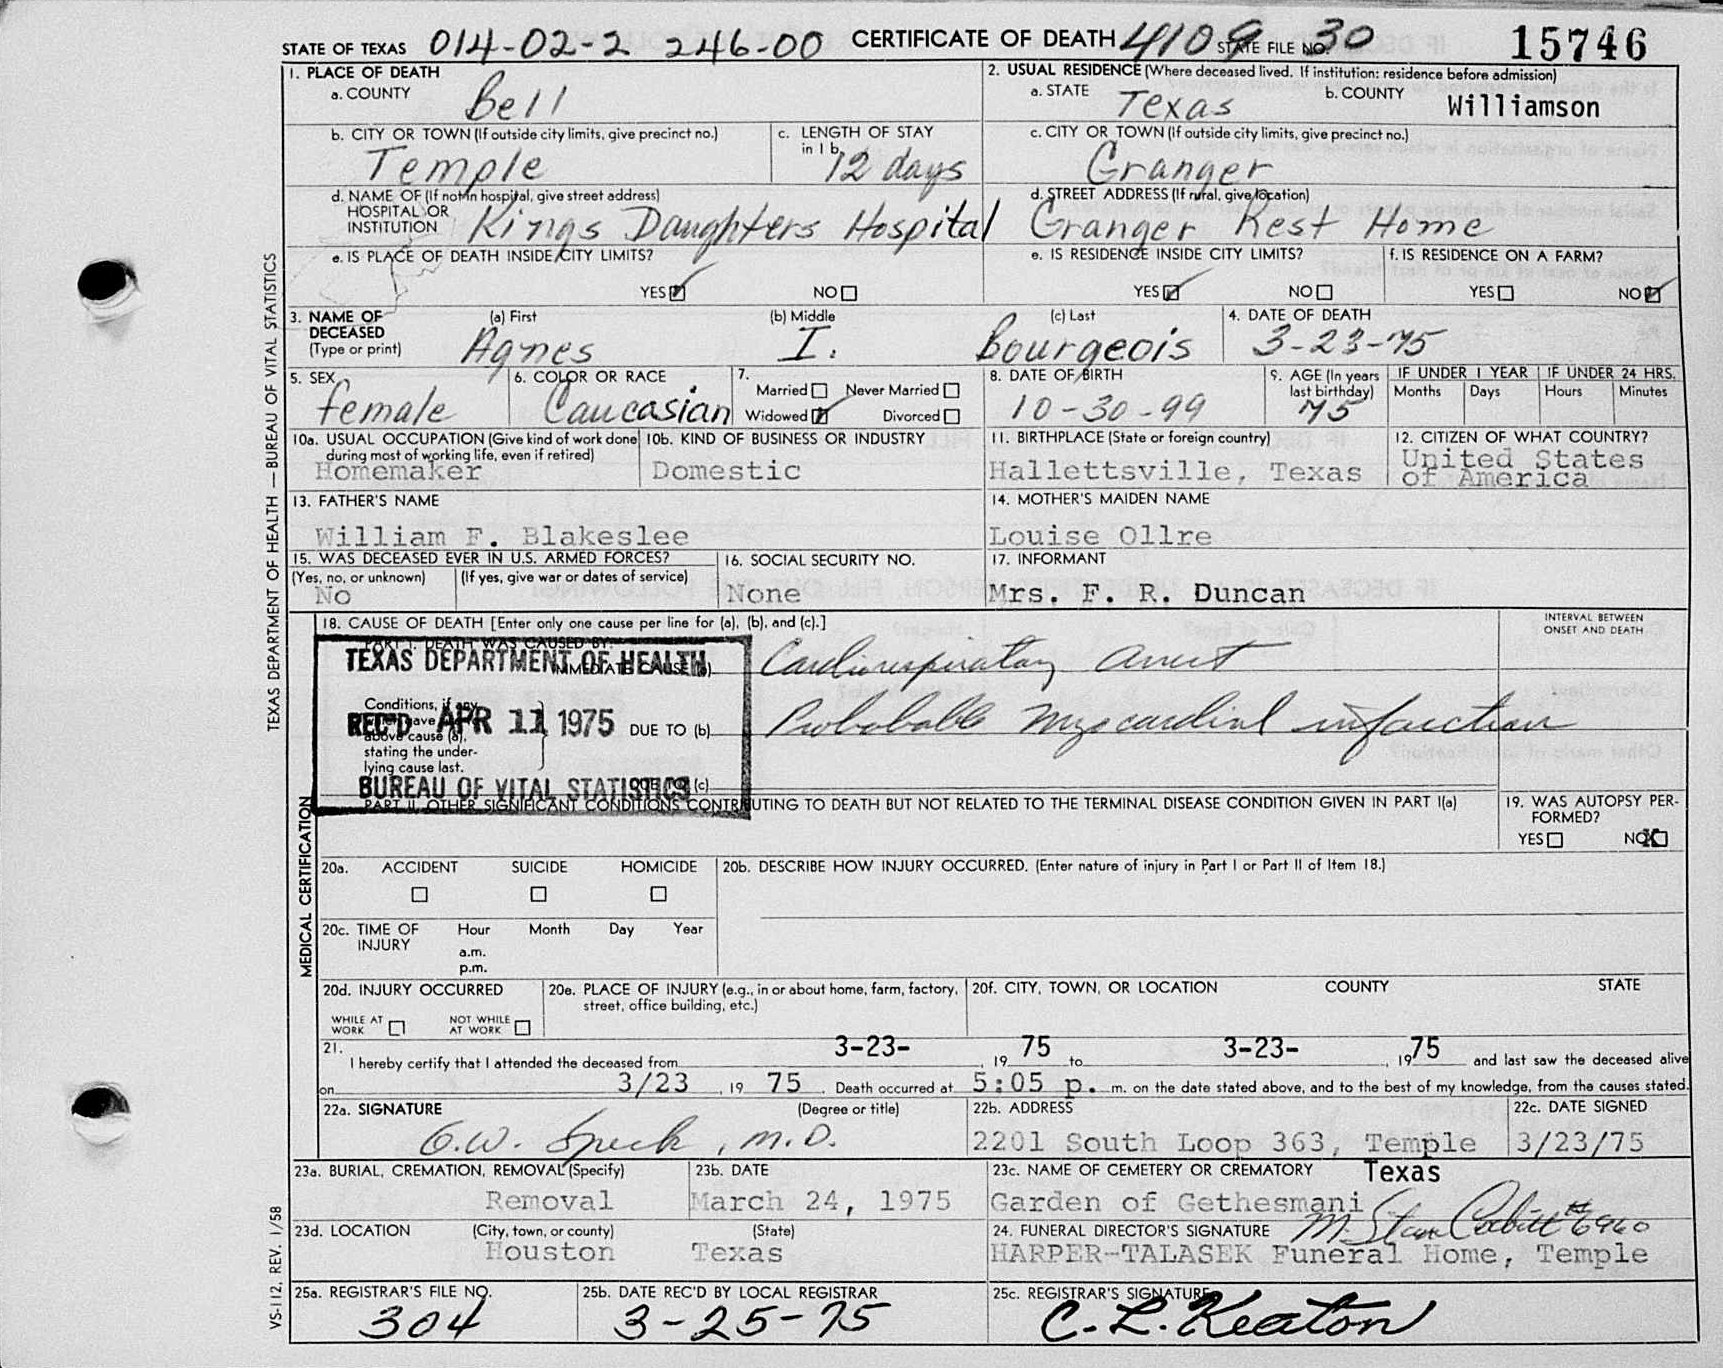 STATE OF TEXAS 014-02-2 246-00 CERTIFICATE OF DEATH 4109 STATE FILE NO. 30 15746
1. PLACE OF DEATH
a. COUNTY Bell
2. USUAL RESIDENCE (Where deceased lived. If institution: residence before admission)
a. STATE Texas b. COUNTY Williamson
b. CITY OR TOWN (If outside city limits, give precinct no.)
Temple
c. LENGTH OF STAY
in 1 b. 12 days
c. CITY OR TOWN (If outside city limits, give precinct no.)
Granger
d. NAME OF (If not in hospital, give street address)
HOSPITAL OR
INSTITUTION Kings Daughters Hospital
d. STREET ADDRESS (If rural, give location)
Granger Rest Home
e. IS PLACE OF DEATH INSIDE CITY LIMITS?
YES NO
e. IS RESIDENCE INSIDE CITY LIMITS?
YES NO
f. IS RESIDENCE ON A FARM?
YES NO
3. NAME OF
DECEASED
(Type or print)
(a) First (b) Middle (c) Last
Agnes I. Bourgeois
4. DATE OF DEATH
3-23-75
5. SEX
female
6. COLOR OR RACE
Caucasian
7.
Married Never Married
Widowed Divorced
8. DATE OF BIRTH
10-30-99
9. AGE (In years
last birthday)
75
IF UNDER 1 YEAR IF UNDER 24 HRS.
Months Days Hours Minutes
10a. USUAL OCCUPATION (Give kind of work done
during most of working life, even if retired)
Homemaker
10b. KIND OF BUSINESS OR INDUSTRY
Domestic
11. BIRTHPLACE (State or foreign country)
Hallettsville, Texas
12. CITIZEN OF WHAT COUNTRY?
United States
of America
13. FATHER'S NAME
William F. Blakeslee
14. MOTHER'S MAIDEN NAME
Louise Ollre
15. WAS DECEASED EVER IN U.S. ARMED FORCES?
(Yes, no, or unknown) (If yes, give war or dates of service)
No
16. SOCIAL SECURITY NO.
None
17. INFORMANT
Mrs. F. R. Duncan
18. CAUSE OF DEATH [Enter only one cause per line for (a), (b), and (c).]
INTERVAL BETWEEN
ONSET AND DEATH
PART I. DEATH WAS CAUSED BY:
IMMEDIATE CAUSE (a) Cardiorespiratory arrest
TEXAS DEPARTMENT OF HEALTH
Conditions, if any,
which gave
above cause (a),
stating the under-
lying cause last.
REC'D APR 11 1975
DUE TO (b) Probable myocardial infarction
BUREAU OF VITAL STATISTICS
DUE TO (c)
PART II. OTHER SIGNIFICANT CONDITIONS CONTRIBUTING TO DEATH BUT NOT RELATED TO THE TERMINAL DISEASE CONDITION GIVEN IN PART I(a)
19. WAS AUTOPSY PER-
FORMED?
YES NO X
20a. ACCIDENT SUICIDE HOMICIDE
20b. DESCRIBE HOW INJURY OCCURRED. (Enter nature of injury in Part I or Part II of Item 18.)
20c. TIME OF
INJURY
Hour Month Day Year
a.m.
p.m.
20d. INJURY OCCURRED
WHILE AT
WORK
NOT WHILE
AT WORK
20e. PLACE OF INJURY (e.g., in or about home, farm, factory,
street, office building, etc.)
20f. CITY, TOWN, OR LOCATION COUNTY STATE
21.
I hereby certify that I attended the deceased from 3-23- , 19 75 to 3-23- , 19 75 and last saw the deceased alive
on 3/23 , 19 75 . Death occurred at 5:05 p. m. on the date stated above, and to the best of my knowledge, from the causes stated.
22a. SIGNATURE (Degree or title)
G.W. Speck, M.D.
22b. ADDRESS
2201 South Loop 363, Temple
Texas
22c. DATE SIGNED
3/23/75
23a. BURIAL, CREMATION, REMOVAL (Specify)
Removal
23b. DATE
March 24, 1975
23c. NAME OF CEMETERY OR CREMATORY
Garden of Gethesmani
23d. LOCATION (City, town, or county) (State)
Houston Texas
24. FUNERAL DIRECTOR'S SIGNATURE #6960
HARPER-TALASEK Funeral Home, Temple
25a. REGISTRAR'S FILE NO.
304
25b. DATE REC'D BY LOCAL REGISTRAR
3-25-75
25c. REGISTRAR'S SIGNATURE
C. L. Keaton
TEXAS DEPARTMENT OF HEALTH — BUREAU OF VITAL STATISTICS
MEDICAL CERTIFICATION
VS-112, REV. 1/58